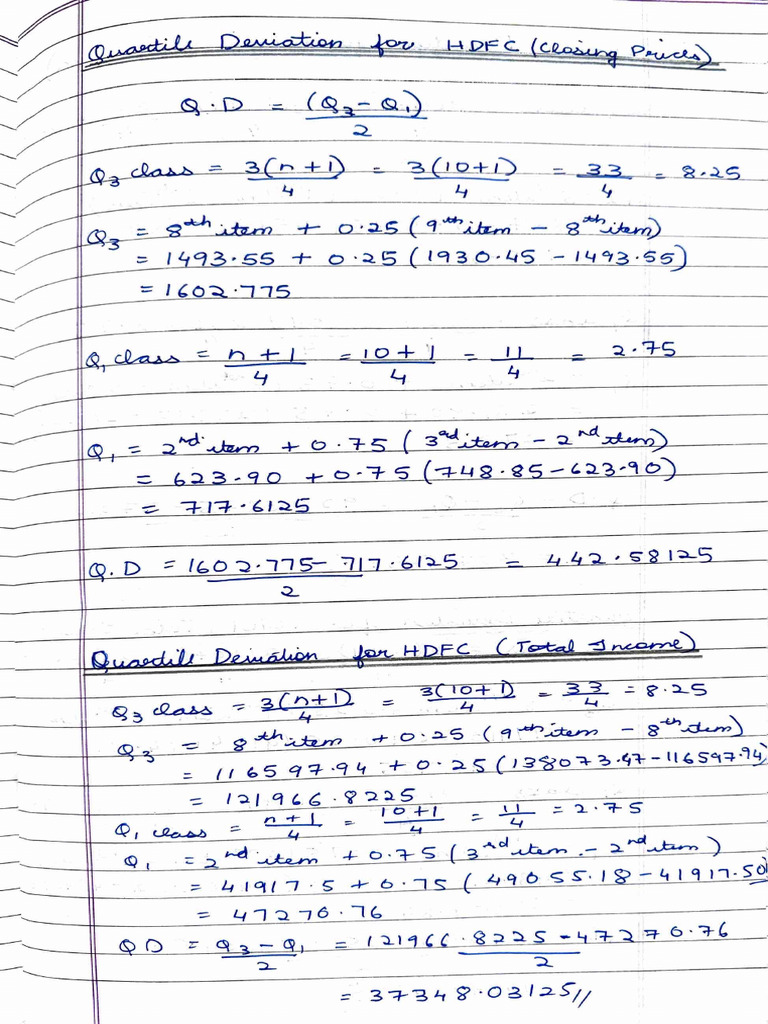 Quartile Deviation for HDFC (Closing Prices)
Q.D = (Q₃ - Q₁) / 2
Q₃ class = 3(n+1)/4 = 3(10+1)/4 = 33/4 = 8.25
Q₃ = 8th item + 0.25 (9th item - 8th item)
= 1493.55 + 0.25 (1930.45 - 1493.55)
= 1602.775
Q₁ class = n+1/4 = 10+1/4 = 11/4 = 2.75
Q₁ = 2nd item + 0.75 (3rd item - 2nd item)
= 623.90 + 0.75 (748.85 - 623.90)
= 717.6125
Q.D = 1602.775 - 717.6125 / 2 = 442.58125
Quartile Deviation for HDFC (Total Income)
Q₃ class = 3(n+1)/4 = 3(10+1)/4 = 33/4 = 8.25
Q₃ = 8th item + 0.25 (9th item - 8th item)
= 116597.94 + 0.25 (138073.47 - 116597.94)
= 121966.8225
Q₁ class = n+1/4 = 10+1/4 = 11/4 = 2.75
Q₁ = 2nd item + 0.75 (3rd item - 2nd item)
= 41917.5 + 0.75 (49055.18 - 41917.50)
= 47270.76
QD = Q₃ - Q₁ / 2 = 121966.8225 - 47270.76 / 2
= 37348.03125//